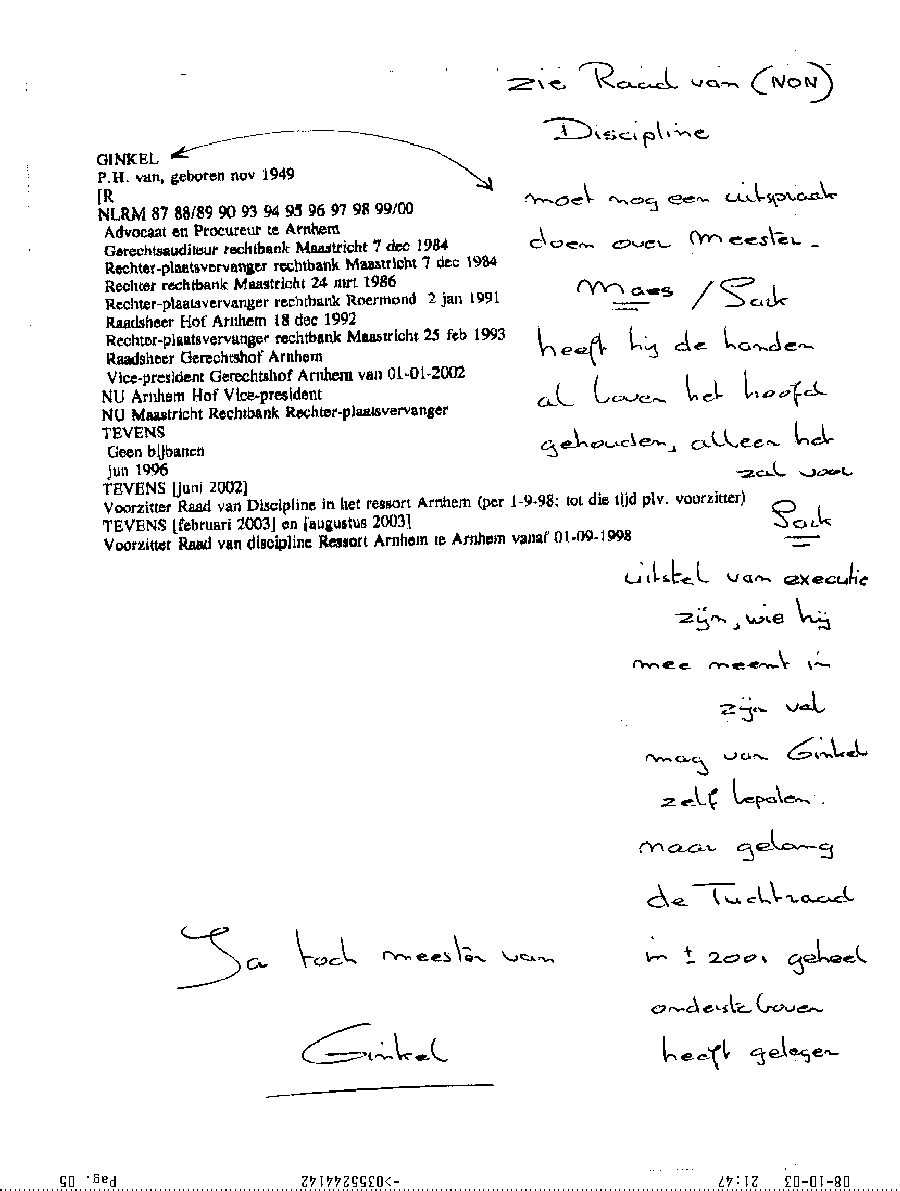 zie Raad van (NON)
Discipline
GINKEL
P.H. van, geboren nov 1949
[R
NLRM 87 88/89 90 93 94 95 96 97 98 99/00
Advocaat en Procureur te Arnhem
Gerechtsauditeur rechtbank Maastricht 7 dec 1984
Rechter-plaatsvervanger rechtbank Maastricht 7 dec 1984
Rechter rechtbank Maastricht 24 mrt 1986
Rechter-plaatsvervanger rechtbank Roermond 2 jan 1991
Raadsheer Hof Arnhem 18 dec 1992
Rechter-plaatsvervanger rechtbank Maastricht 25 feb 1993
Raadsheer Gerechtshof Arnhem
Vice-president Gerechtshof Arnhem van 01-01-2002
NU Arnhem Hof Vice-president
NU Maastricht Rechtbank Rechter-plaatsvervanger
TEVENS
Geen bijbanen
jun 1996
TEVENS [juni 2002]
Voorzitter Raad van Discipline in het ressort Arnhem (per 1-9-98; tot die tijd plv. voorzitter)
TEVENS [februari 2003] en [augustus 2003]
Voorzitter Raad van discipline Ressort Arnhem te Arnhem vanaf 01-09-1998
moet nog een uitspraak
doen over meester
Maes / Sack
heeft hij de handen
al boven het hoofd
gehouden, alleen het
zal voor
Sack
uitstel van executie
zijn, wie hij
mee neemt in
zijn val
mag van Ginkel
zelf bepalen.
naar gelang
de Tuchtraad
in ± 2001 geheel
ondersteboven
heeft gelegen
Ja toch meester van
Ginkel
08-10-03 21:47
->0355244142
Pag. 05